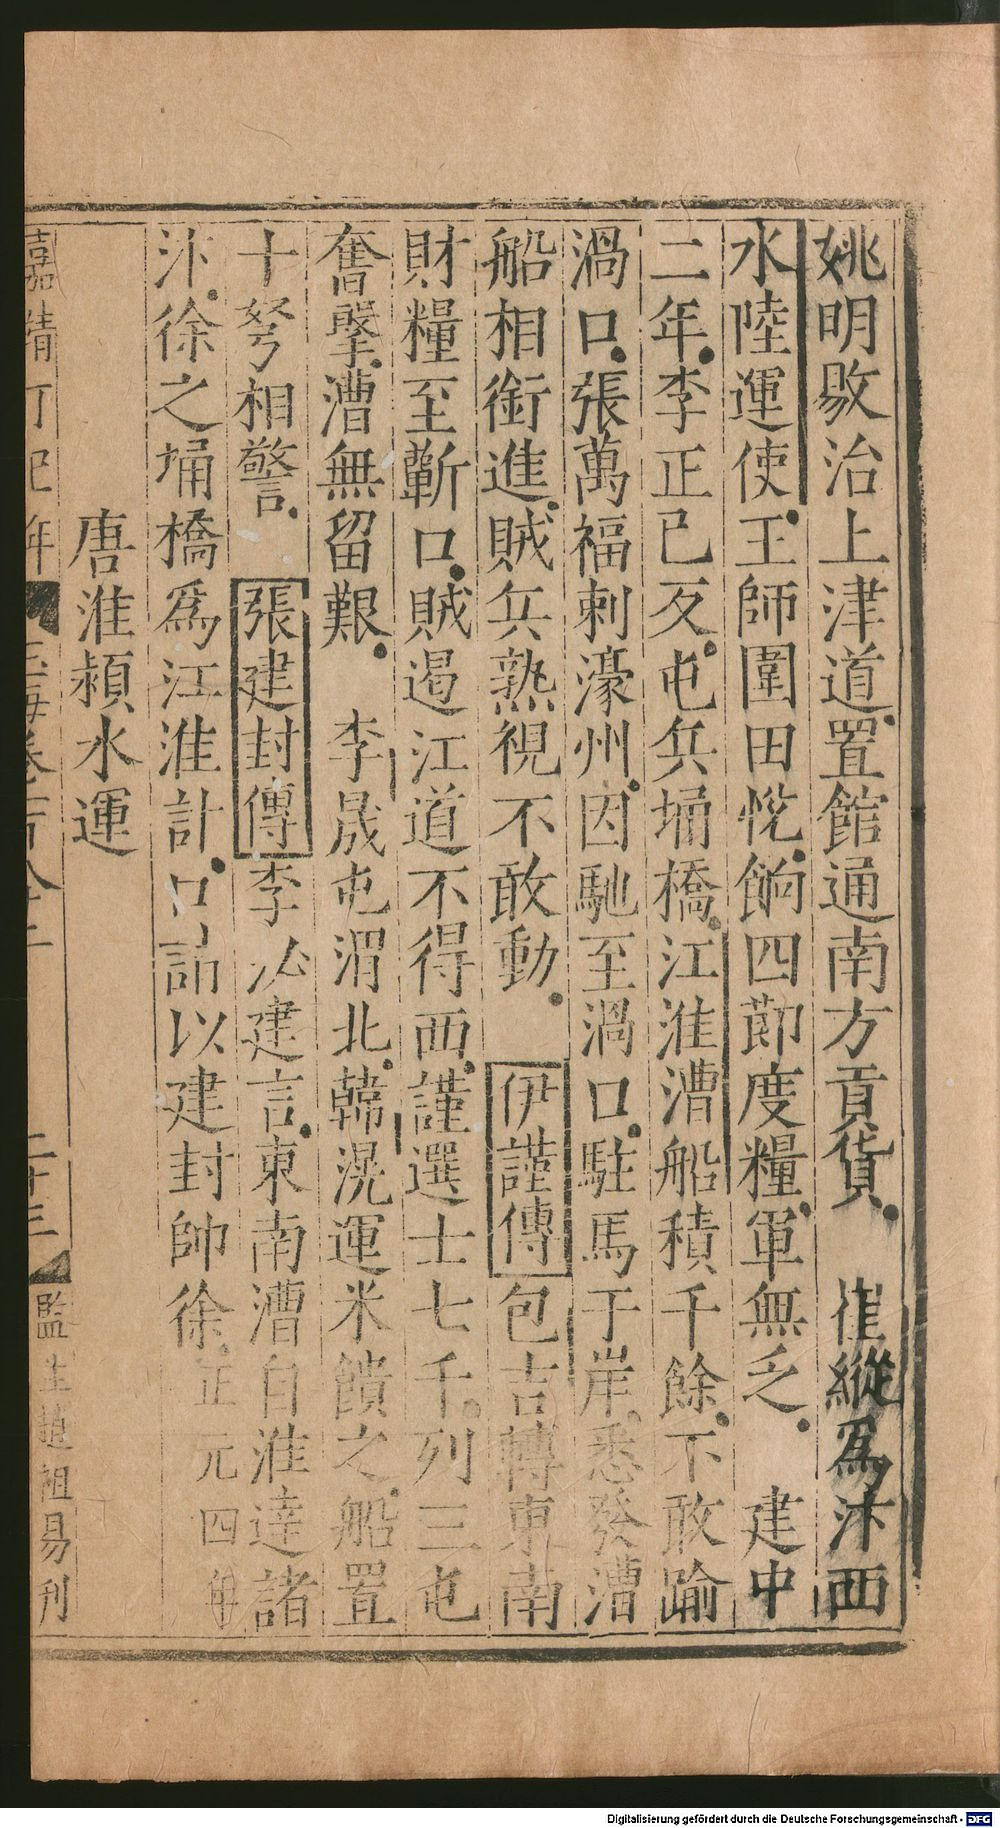 姚明敭治上津道置館通南方貢貨　崔縱爲汴西
水陸運使王師圍田悅餉四節度糧軍無乏　建中
二年李正已反屯兵埇橋江淮漕船積千餘不敢踰
渦口張萬福刺濠州因馳至渦口駐馬于岸悉發漕
船相銜進賊兵熟視不敢動　伊謹傳包吉轉東南
財糧至蘄口賊遏江道不得西謹選士七千列三屯
奮擊漕無留艱　李晟屯渭北韓滉運米饋之船置
十弩相警　張建封傳李泌建言東南漕自淮達諸
汴徐之埇橋爲江淮計口請以建封帥徐正元四年
唐淮潁水運
嘉靖丁巳年　玉海卷一百八十二　二十三　監生趙祖易刊
Digitalisierung gefördert durch die Deutsche Forschungsgemeinschaft - DFG